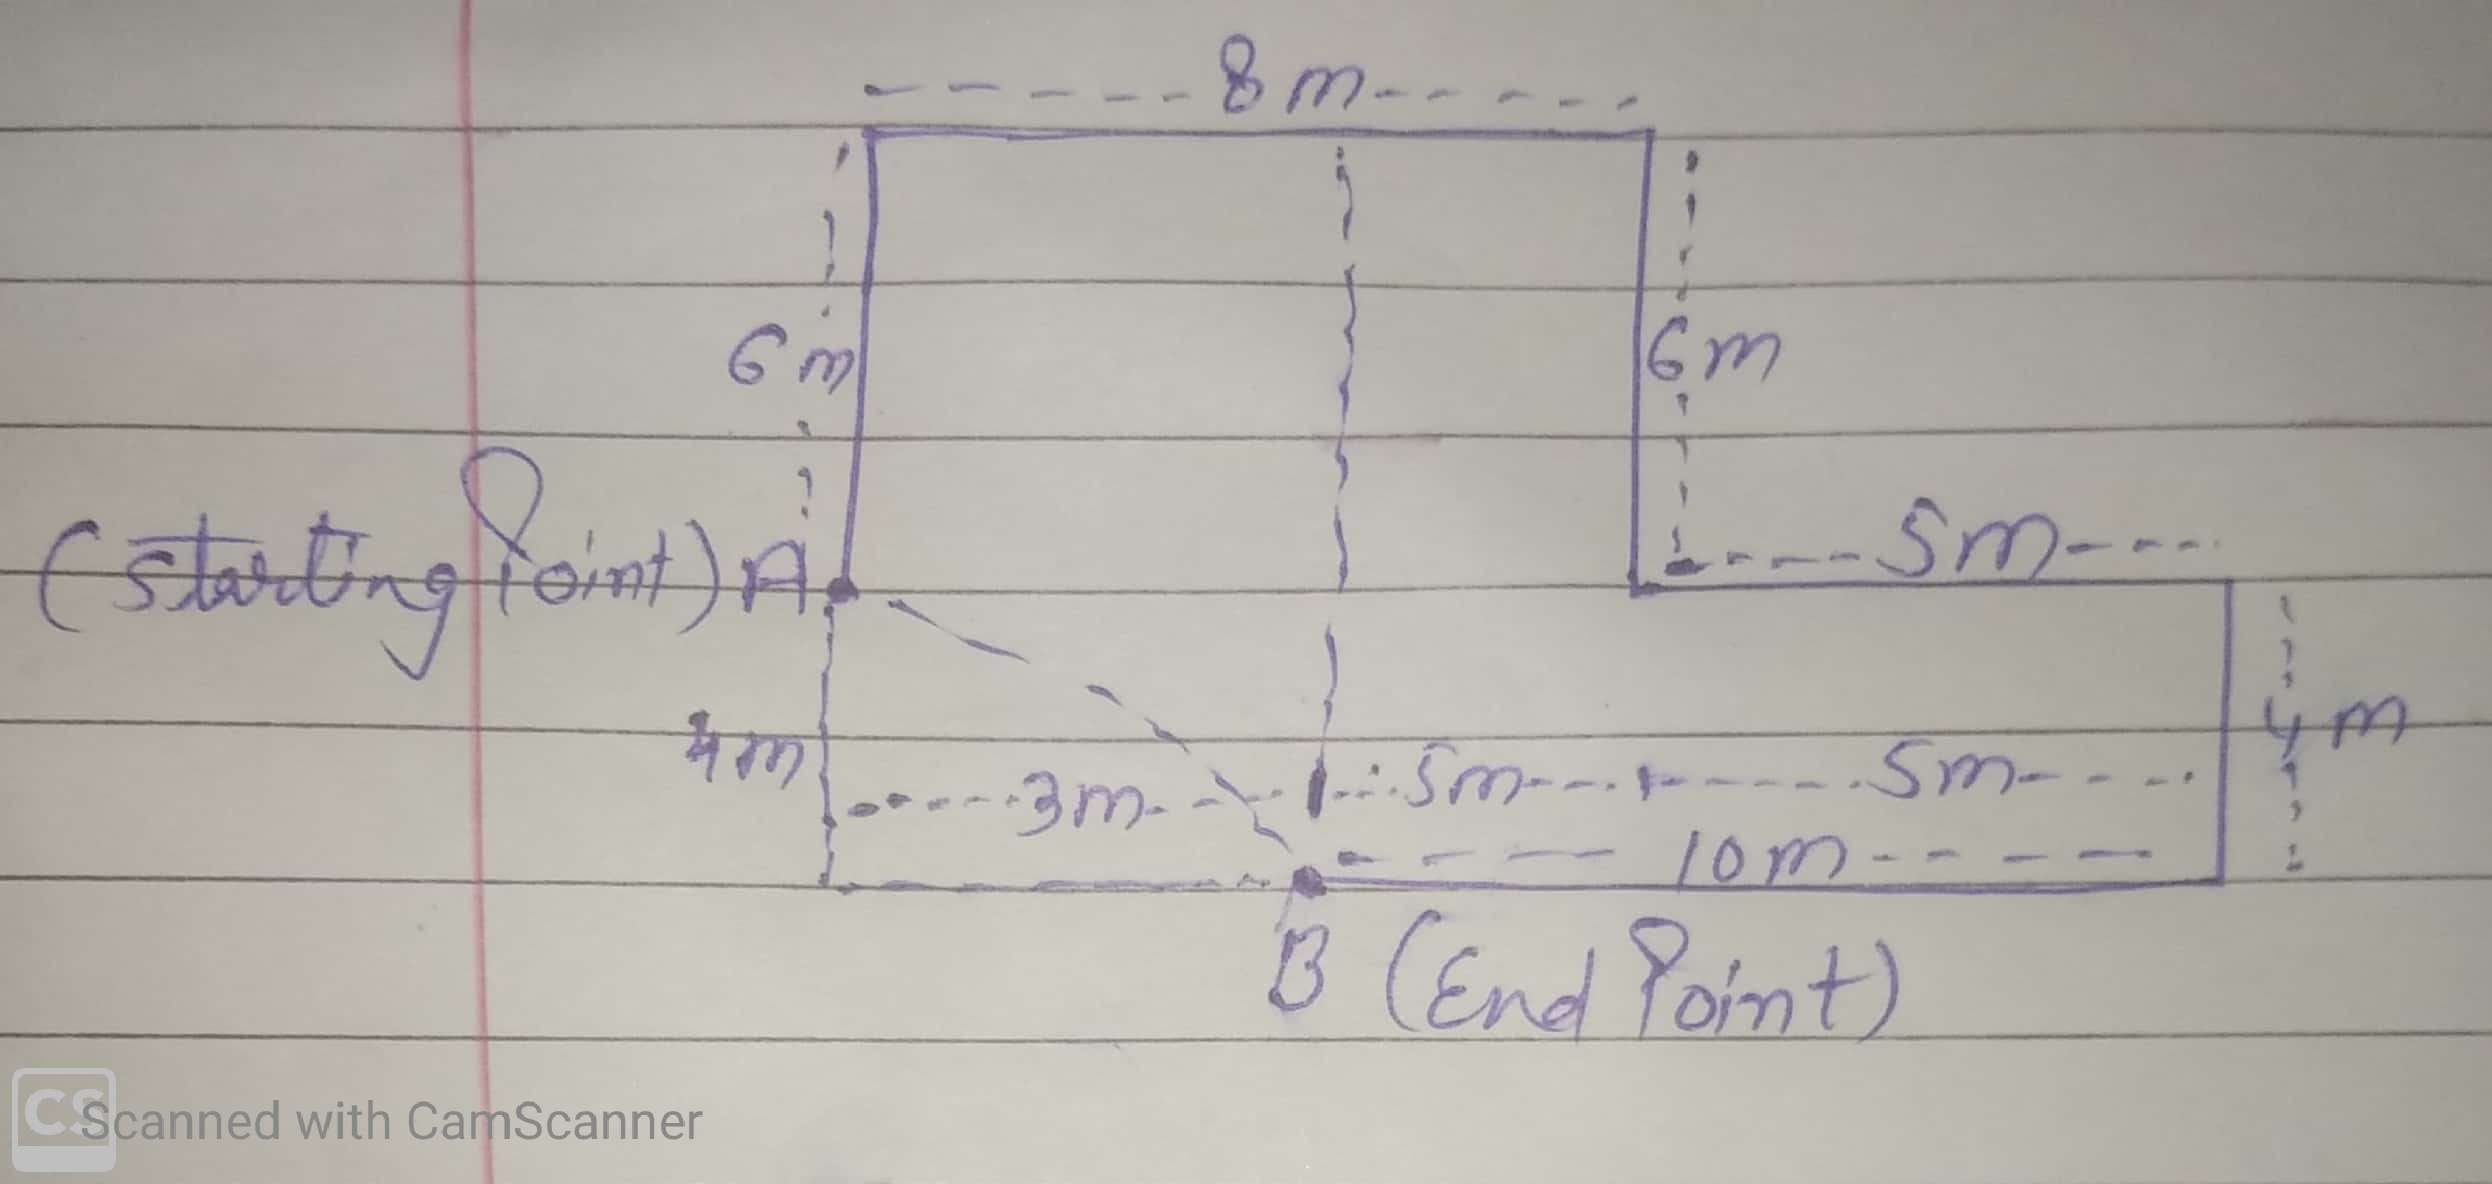 8m
6m
6m
5m
(Starting Point) A
4m
4m
3m
5m
5m
10m
B (End Point)
CS
Scanned with CamScanner